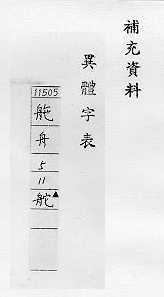 補充資料
異體字表
11505
舵
舟
5
11
舵